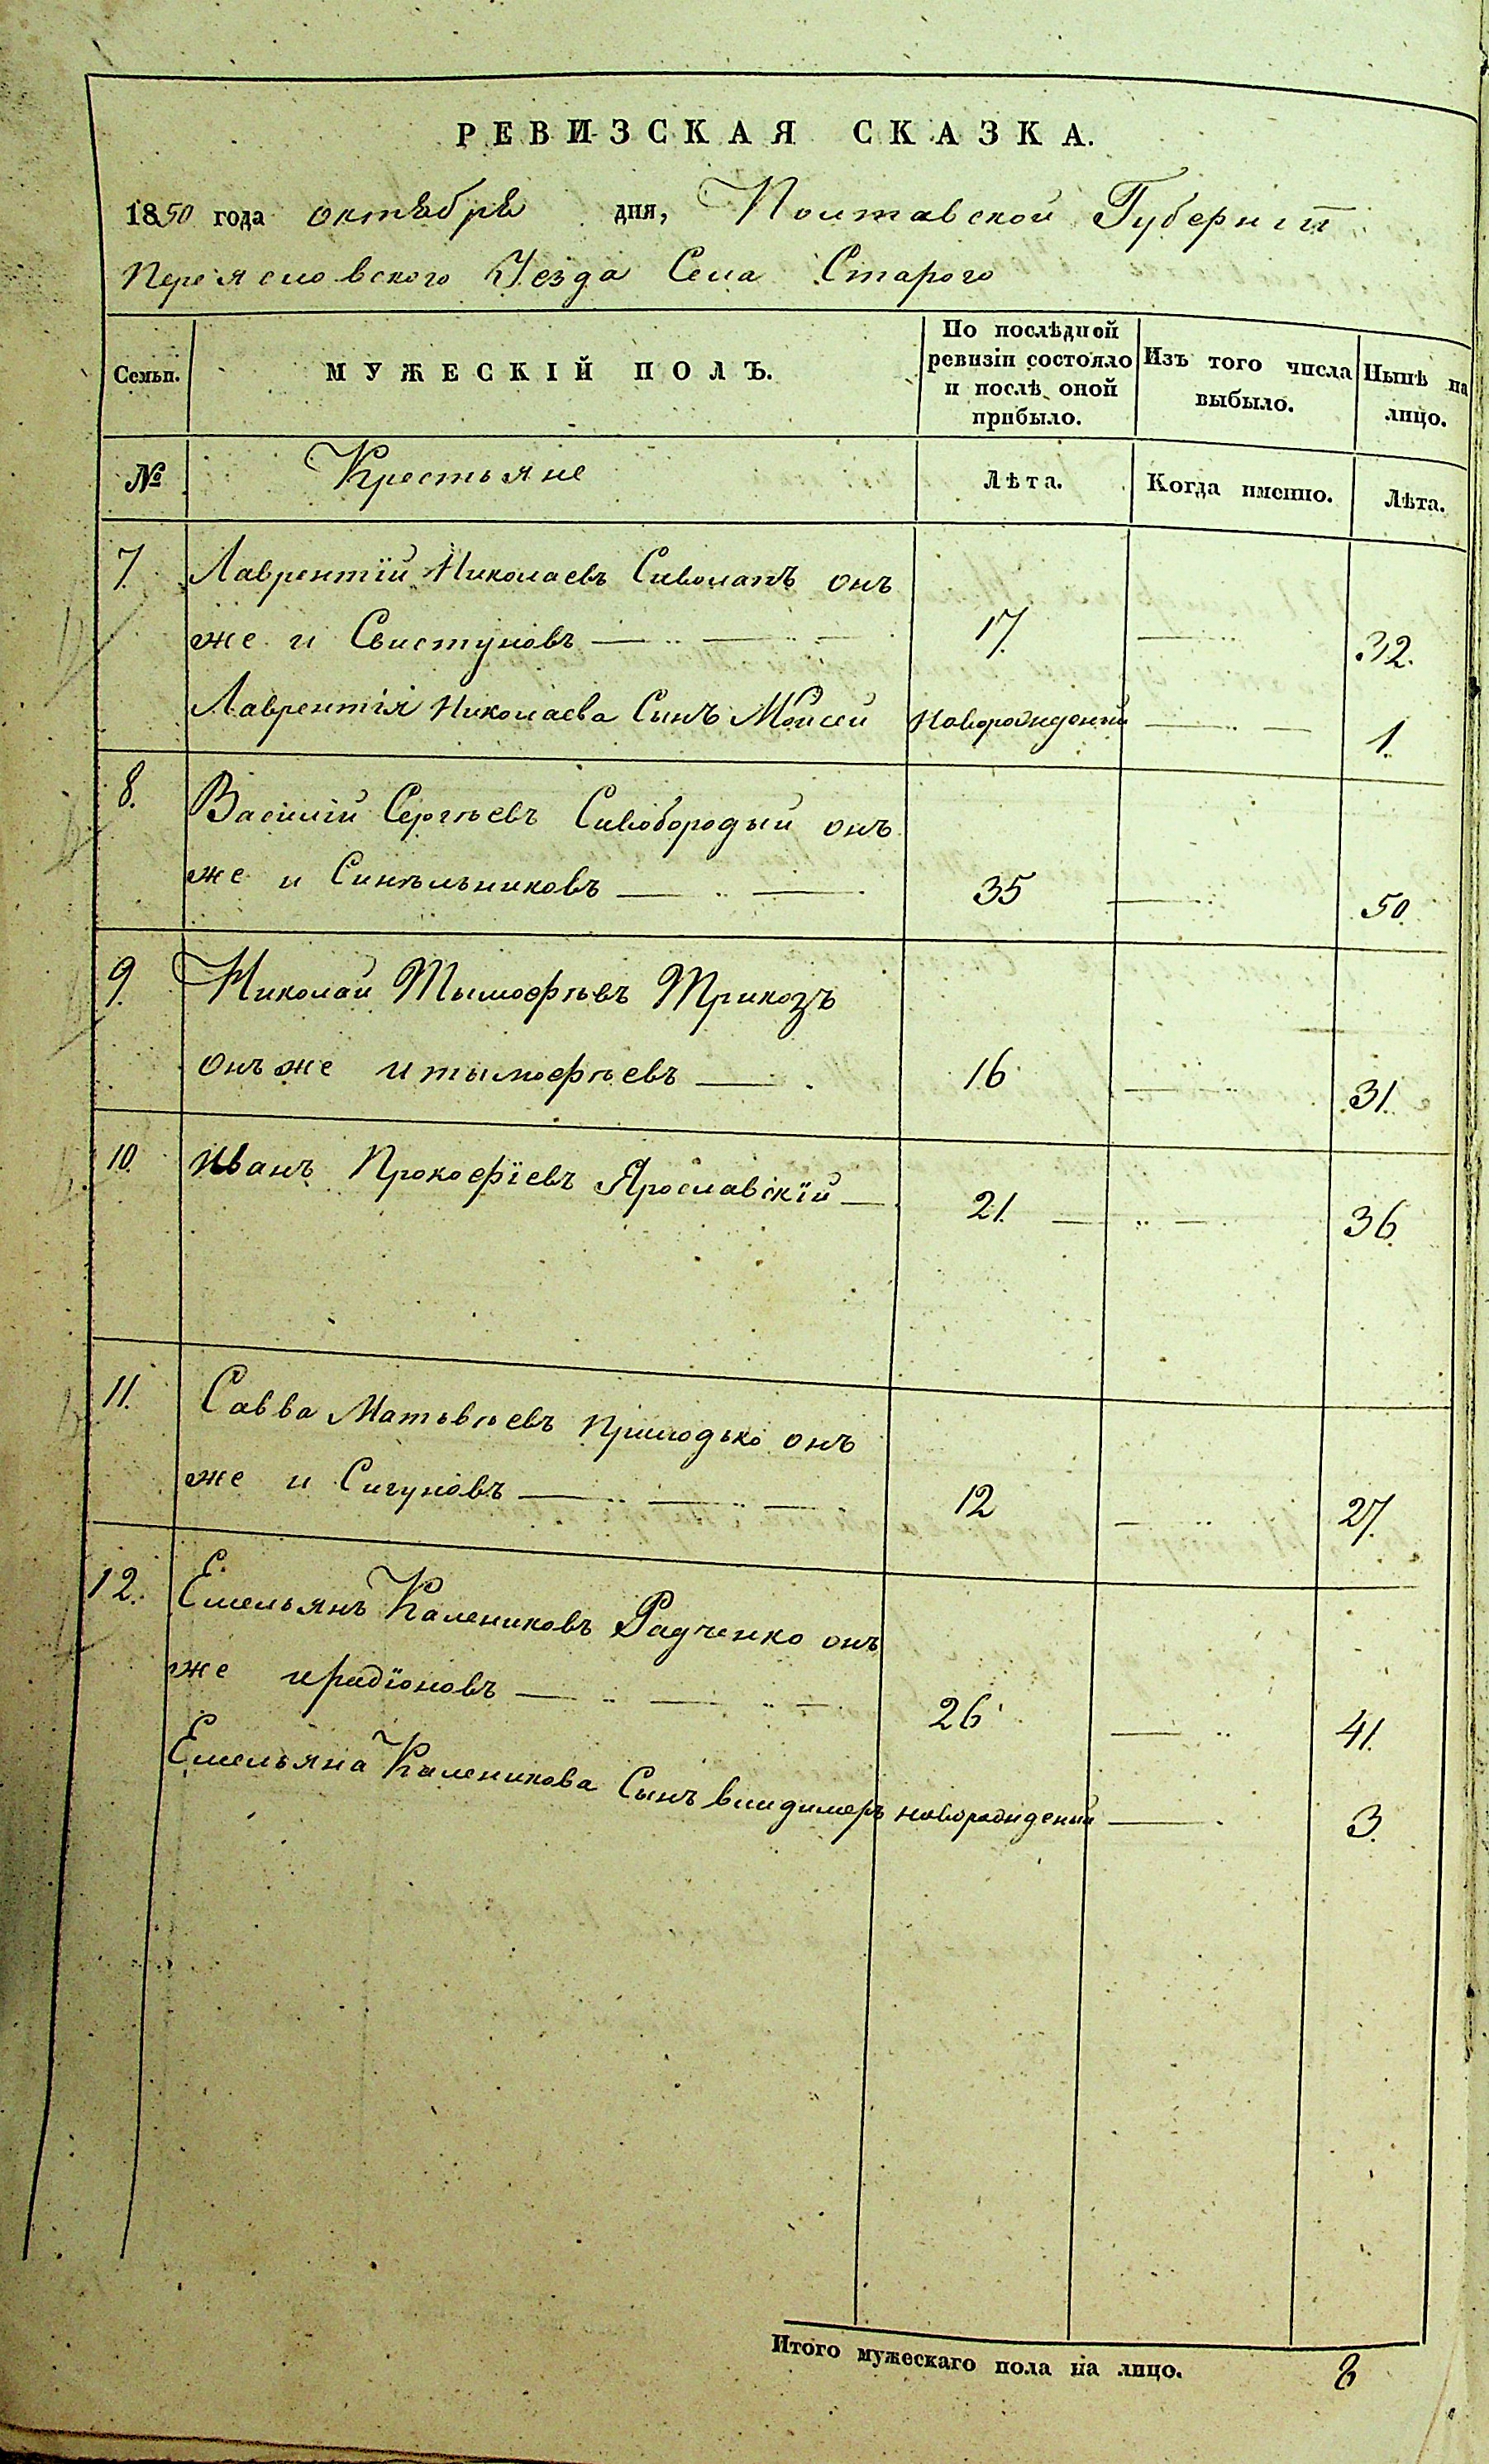 РЕВИЗСКАЯ СКАЗКА.
1850 года октября дня, Полтавской Губерніи
Переясловского Уезда Села Старого
Семьи. МУЖЕСКІЙ ПОЛЪ. По послѣдней ревизіи состояло и послѣ оной прибыло. Изъ того числа выбыло. Нынѣ на лицо.
№ Крестьяне Лѣта. Когда именно. Лѣта.
7. Лаврентій Николаевъ Сиволапъ онъ
же и Свистуновъ 17. 32.
Лаврентія Николаева Сынъ Мойсей Новорожденій 1.
8. Василій Сергѣевъ Сивобородый онъ
же и Синѣльниковъ 35 50.
9. Николай Тымофѣвъ Трикозъ
онъ же и тымофѣевъ 16 31.
10. Иванъ Прокофіевъ Ярославскій 21. 36.
11. Савва Матьвѣевъ Приходько онъ
же и Сигуновъ 12 27.
12. Емельянъ Калениковъ Радченко онъ
же и радіоновъ 26 41.
Емельяна Каленикова Сынъ владимеръ новорожденій 3.
Итого мужескаго пола на лицо. 8